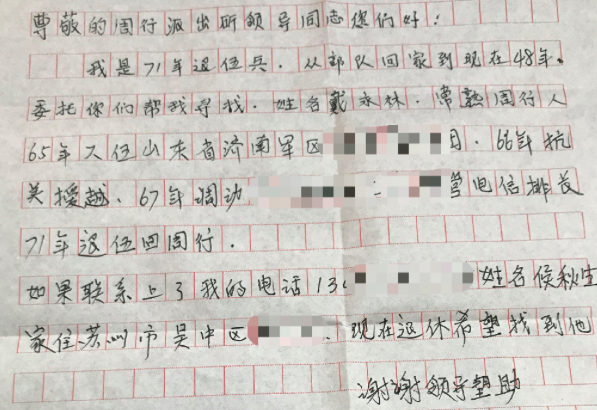 尊敬的周行派出所领导同志您们好:
我是71年退伍兵.从部队回家到现在48年。
委托你们帮我寻找.姓名戴永林.常熟周行人
65年入伍山东省济南军区 日.66年抗
美援越.67年调动 二 营电信排长
71年退伍回周行.
如果联系上了我的电话13 姓名候秋生
家住苏州市吴中区 .现在退休希望找到他
谢谢领导望助